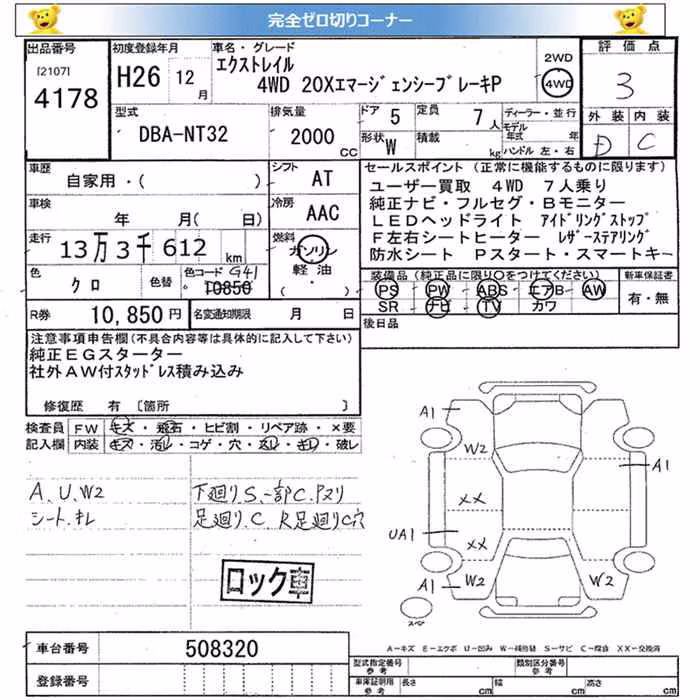 完全ゼロ切りコーナー
出品番号 初度登録年月 車名・グレード 評価点
[2107] 4178 H26 12月 エクストレイル 2WD 3
4WD 20XエマージェンシーブレーキP 4WD
型式 排気量 ドア 5 定員 7人 ディーラー・並行 外装 内装
DBA-NT32 2000CC 形状 W 積載 kg モデル年式 年 D C
ハンドル 左・右
車歴 シフト セールスポイント (正常に機能するものに限ります)
自家用・( ) AT ユーザー買取 4WD 7人乗り
車検 冷房 純正ナビ・フルセグ・Bモニター
年 月( 日) AAC LEDヘッドライト アイドリングストップ
走行 燃料 F左右シートヒーター レザーステアリング
13万3千612km ガソリン 防水シート Pスタート・スマートキー
軽油・( )
色 色替 色コード G41 装備品 (純正品に限り○をつけてください) 新車保証書
クロ 10850 PS PW ABS エアB AW 有・無
SR ナビ TV カワ
R券 10,850円 名変通知期限 月 日 後日品
注意事項申告欄(不具合内容等は具体的に記入して下さい)
純正EGスターター
社外AW付スタッドレス積み込み
修復歴 有 〔箇所 〕
検査員 FW キズ・飛石・ヒビ割・リペア跡・×要
記入欄 内装 キズ・汚レ・コゲ・穴・スレ・キレ・破レ
A.U.W2 下廻りS.一部C.Pヌリ
シート.キレ 足廻り.C R足廻りC穴
ロック車
A1
W2
A1
XX
UA1
XX
A1 W2 W2
スペア
A-キズ E-エクボ U-凹み W-補修跡 S-サビ C-腐食 XX-交換済
車台番号 508320 型式指定番号 参考 類別区分番号 参考
登録番号 車庫証明用 参考 長さ cm 幅 cm 高さ cm